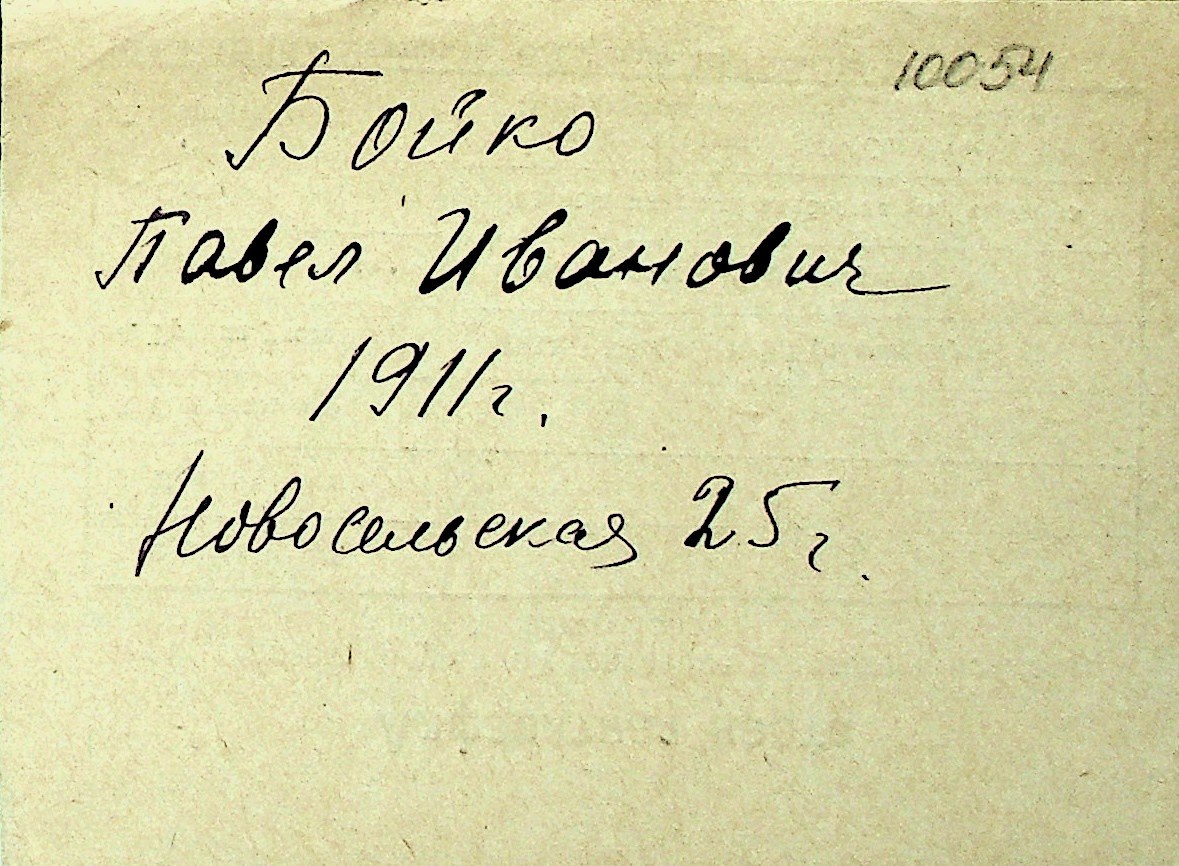 10054
Бойко
Павел Иванович
1911г.
Новосельская 25г.